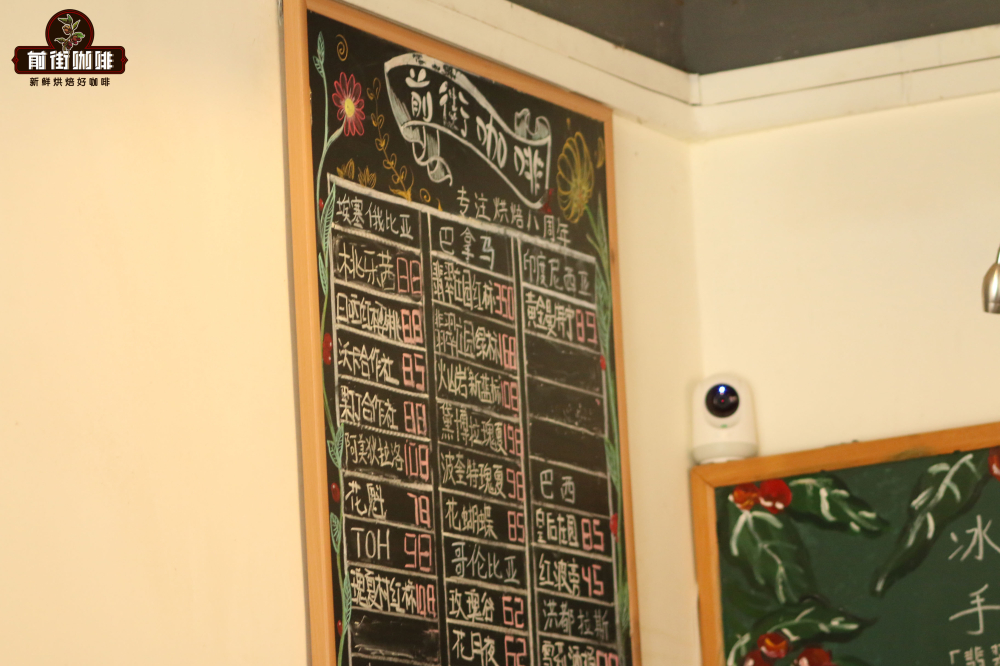 前街咖啡
新鲜烘焙好咖啡
前街咖啡
专注烘焙八周年
埃塞俄比亚
桃乐茜 88
日晒红樱桃 88
沃卡合作社 85
果丁丁合作社 88
阿美狄拉洛 108
花魁 78
TOH 98
瑰夏村红标 108
巴拿马
翡翠庄园红标 350
翡翠庄园绿标 168
火山岩新蓝标 108
黛博拉瑰夏 198
波奎特瑰夏 98
花蝴蝶 85
哥伦比亚
玫瑰谷 62
花月夜 62
印度尼西亚
黄金曼特宁 89
巴西
皇后庄园 85
红波旁 45
洪都拉斯
冰
手